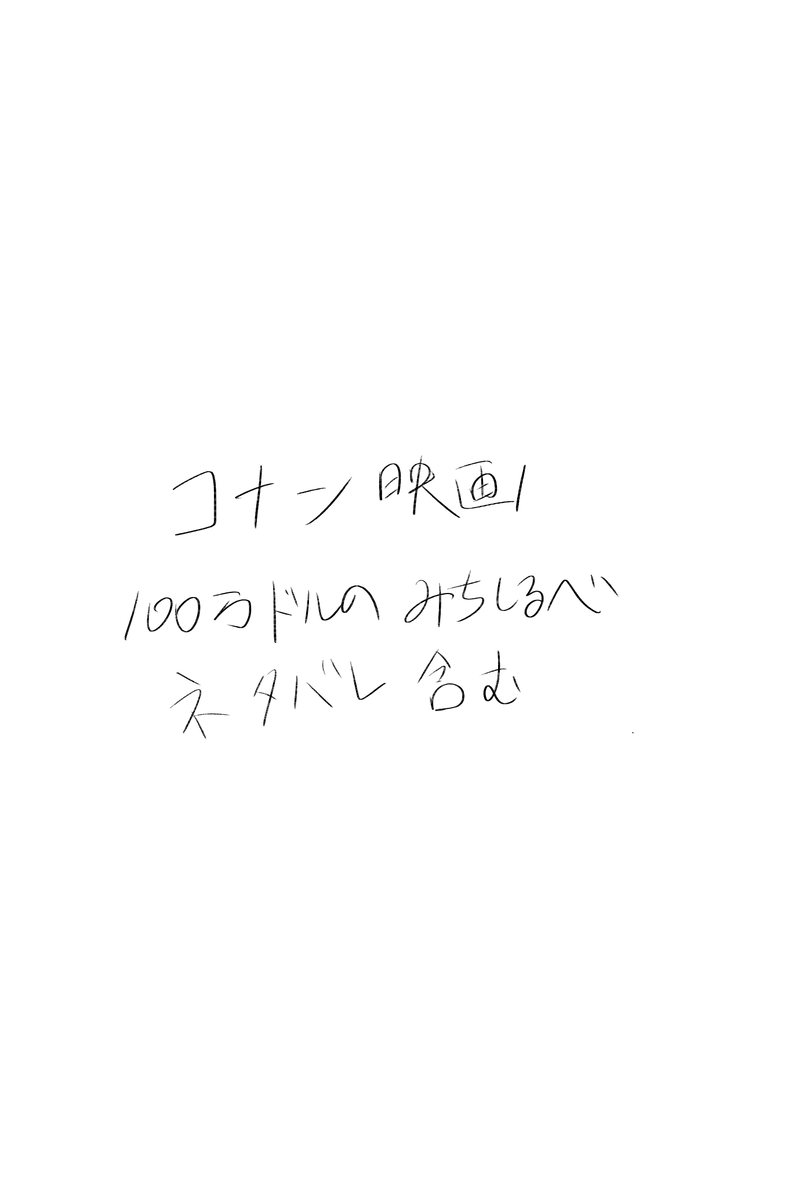 コナン映画
100万ドルのみちしるべ
ネタバレ含む